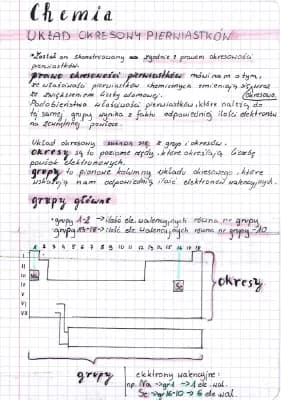 Chemia
UKŁAD OKRESOWY PIERWIASTKÓW
•Został on skonstruowany zgodnie z prawem okresowości
pierwiastków.
prawo okresowości pierwiastków mówi nam o tym,
że właściwości pierwiastków chemicznych zmieniają się wraz
ze zwiększeniem liczby atomowej. okresowo
Podobieństwo właściwości pierwiastków, które należą do
tej samej grupy wynika z faktu odpowiedniej ilości elektronów
na zewnętrznej powłoce.
Układ okresowy składa się z grup i okresów.
okresy są to poziome rzędy, które określają liczbę
powłok elektronowych.
grupy to pionowe kolumny układu okresowego, które
wskazują nam odpowiednią ilość elektronów walencyjnych.
grupy główne
•grupy 1-2 → ilość el. walencyjnych równa nr grupy
•grupy 13-18 → ilość el. walencyjnych równa nr grupy -10
1 2 3 4 5 6 7 8 9 10 11 12 13 14 15 16 17 18
I
II
III Na
IV Se
V
VI
VII
okresy
grupy
elektrony walencyjne:
np. Na → gr 1 → 1 el. wal.
Se → gr 16-10 → 6 el. wal.